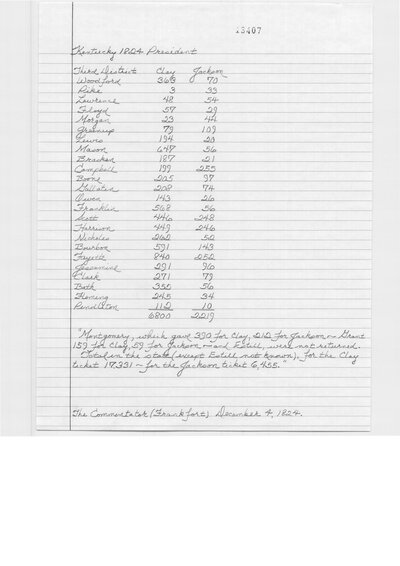 13407
Kentucky 1824 President
Third District Clay Jackson
Woodford 365 70
Pike 3 33
Lawrence 48 54
Floyd 57 29
Morgan 23 44
Greenup 79 109
Lewis 194 23
Mason 647 56
Bracken 187 21
Campbell 199 255
Boone 205 97
Gallatin 208 74
Owen 143 26
Franklin 568 56
Scott 446 248
Harrison 449 246
Nicholas 260 50
Bourbon 591 143
Fayette 840 252
Jessamine 291 96
Clark 271 79
Bath 350 56
Fleming 245 34
Pendleton 112 10
6800 2219
"Montgomery, which gave 390 for Clay, 212 for Jackson ~ Grant
159 for Clay, 59 for Jackson ~ and Estill, were not returned.
Total in the state (except Estill not known), for the Clay
ticket 17,331 ~ for the Jackson ticket 6,455."
The Commentator (Frankfort) December 4, 1824.